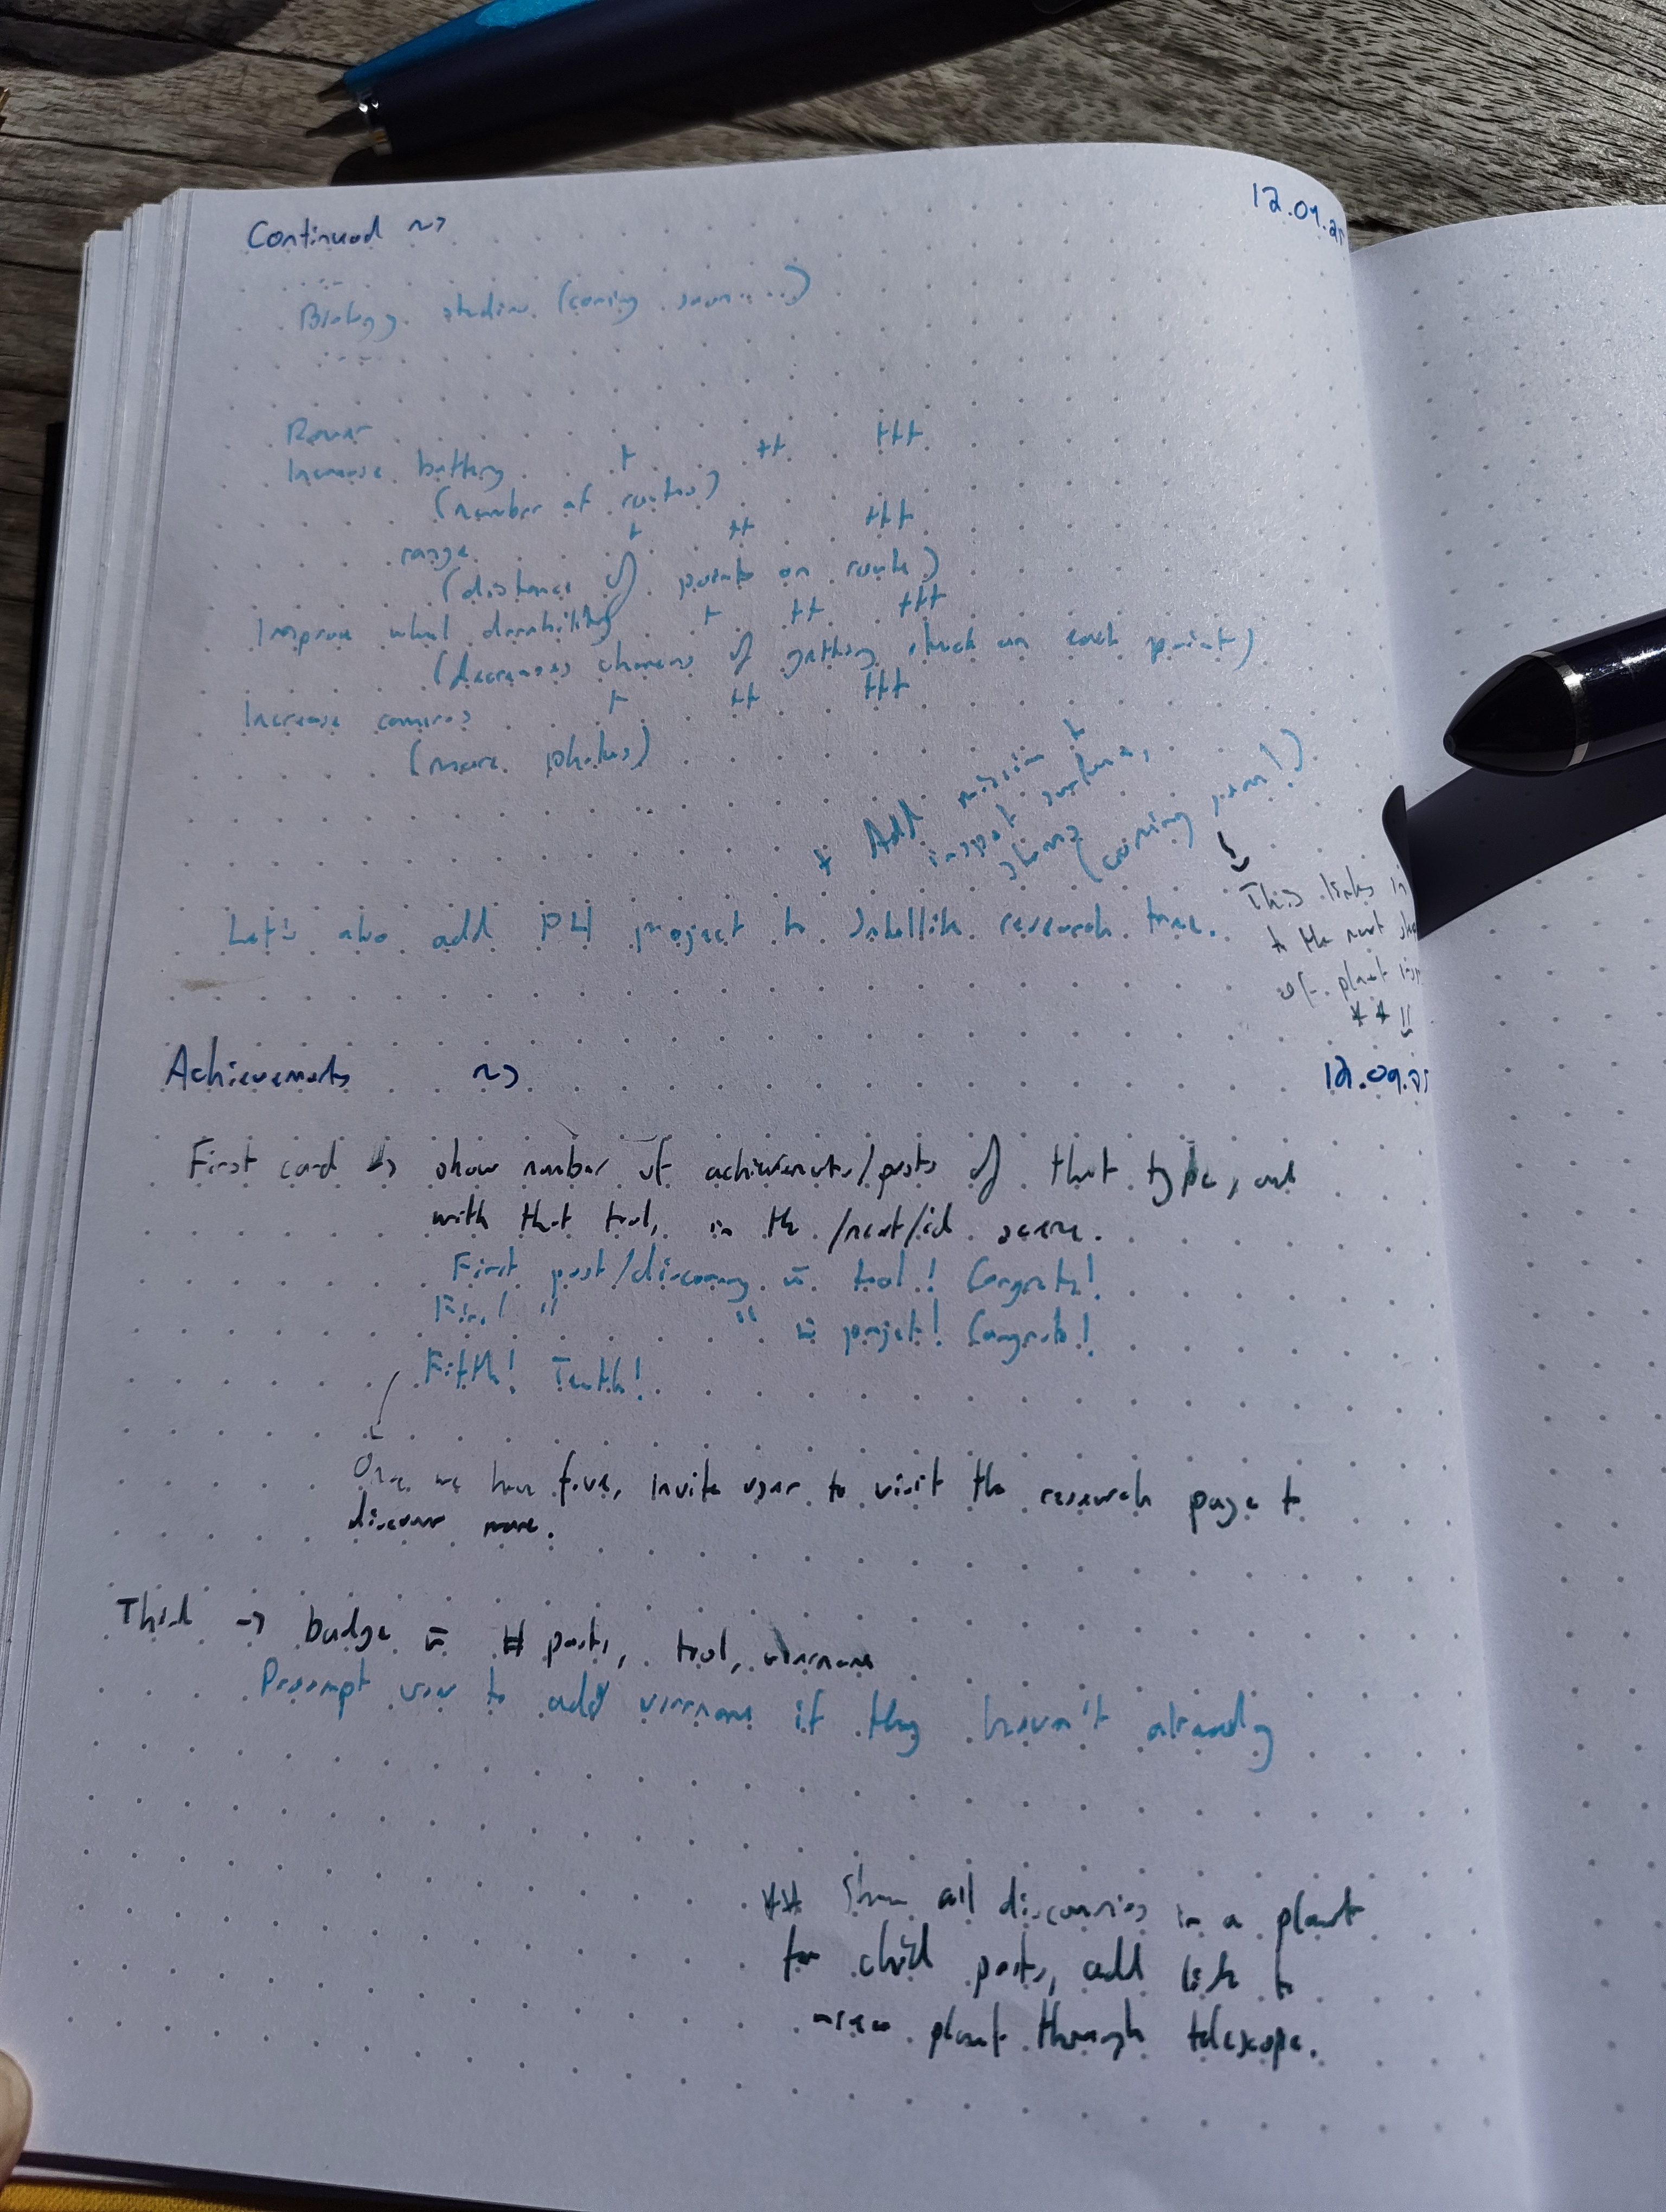 Continued ~>
12.09.25
Biology studies (coming soon....)
Rover
Increase battery + ++ +++
(number of routes)
range + ++ +++
(distance of points on route)
Improve wheel durability + ++ +++
(decreases chances of getting stuck on each point)
Increase cameras + ++ +++
(more photos)
* Add mission +
inspect surface,
(coming soon!)
This links in
to the next
of planet
** ||
Let's also add P4 project to Satellite research tree.
Achievements ~>
12.09.25
First card -> show number of achievements/posts of that type, and
with that tool, in the /next/id scene.
First post/discovery w tool! Congrats!
First " " w project! Congrats!
Fifth! Tenth!
Once we have five, invite user to visit the research page to
discover more.
Third -> badge w # posts, tool, username
Prompt user to add username if they haven't already
** Show all discoveries in a planet
for child posts, add link to
view planet through telescope.